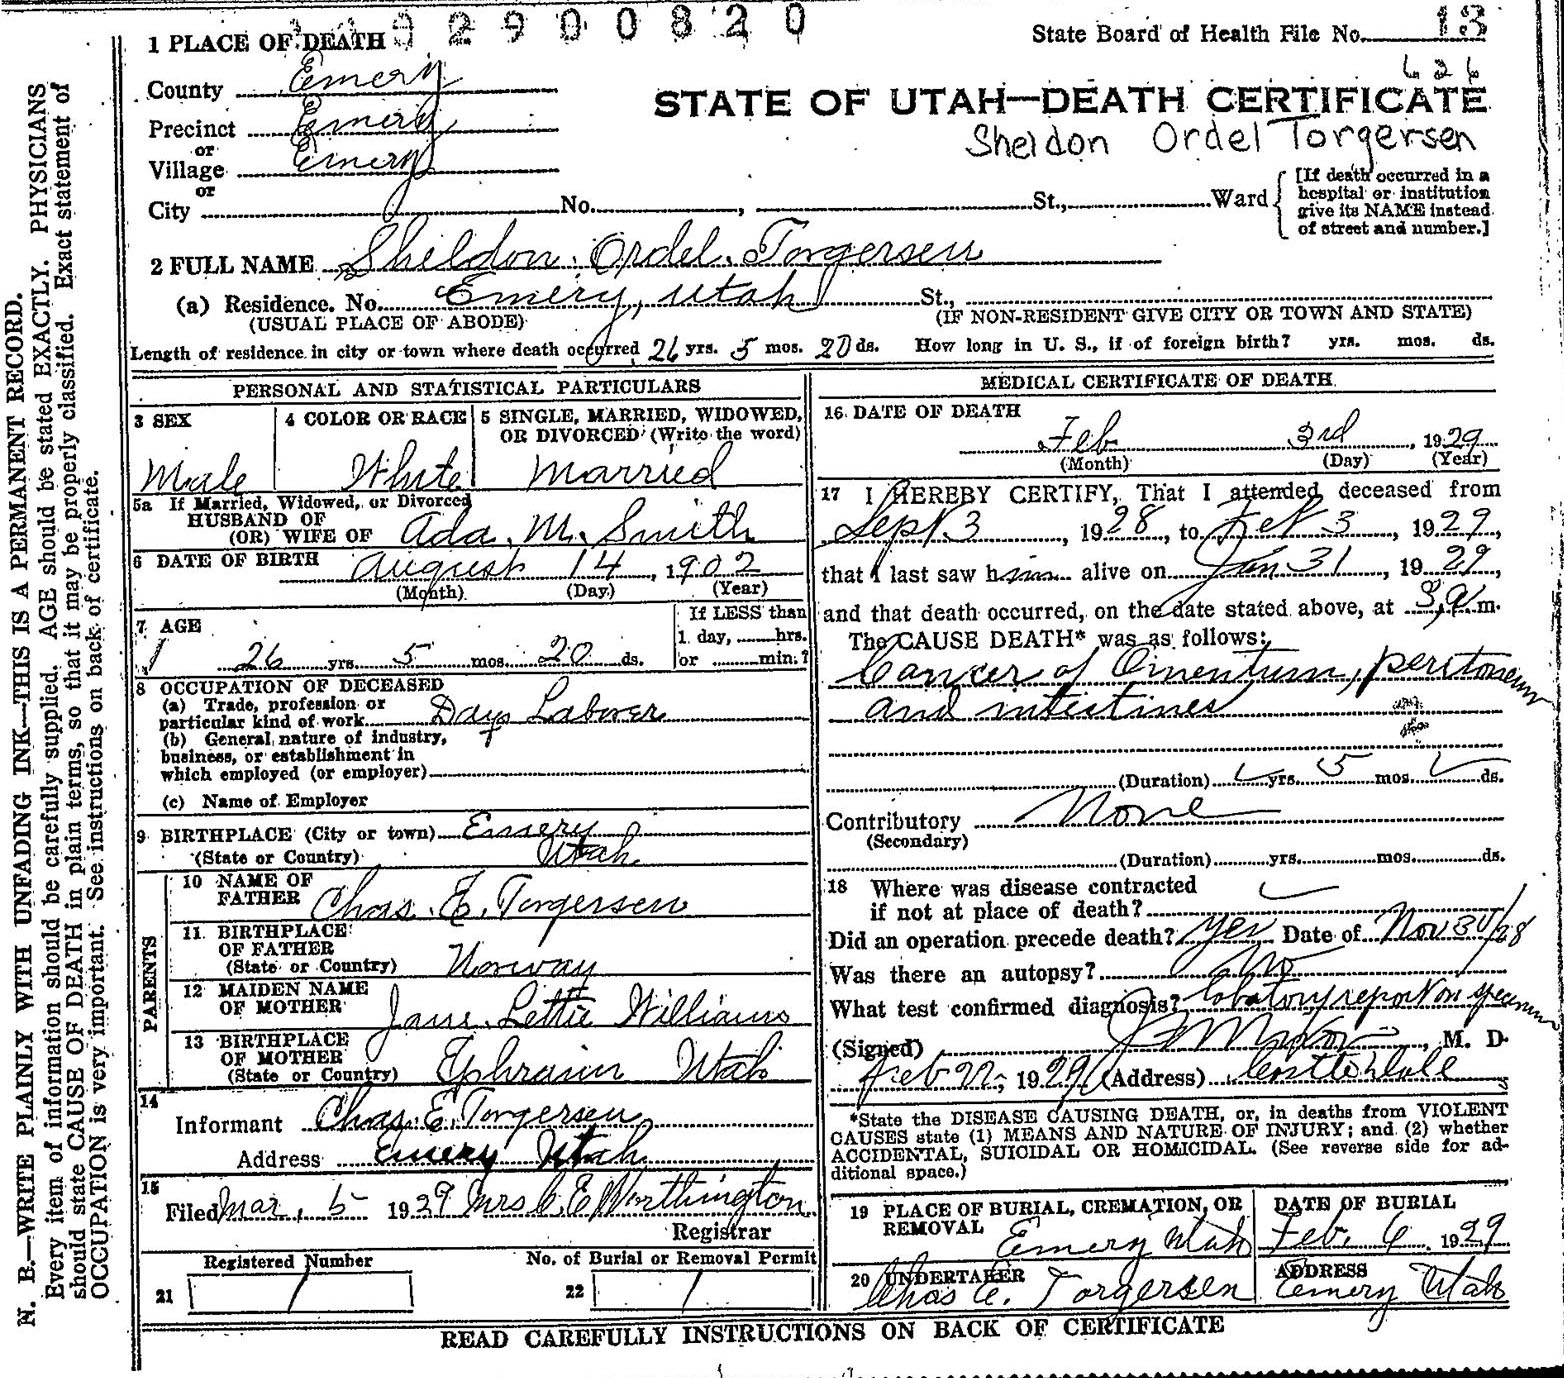 2900820
1 PLACE OF DEATH
State Board of Health File No. 13
626
County Emery
STATE OF UTAH—DEATH CERTIFICATE
Precinct Emery
Sheldon Ordel Torgersen
or
Village Emery
or
City No. , St., Ward
[If death occurred in a hospital or institution give its NAME instead of street and number.]
2 FULL NAME Sheldon Ordel Torgersen
(a) Residence. No. Emery, Utah St.,
(USUAL PLACE OF ABODE) (IF NON-RESIDENT GIVE CITY OR TOWN AND STATE)
Length of residence in city or town where death occurred 26 yrs. 5 mos. 20 ds. How long in U. S., if of foreign birth? yrs. mos. ds.
PERSONAL AND STATISTICAL PARTICULARS
3 SEX
Male
4 COLOR OR RACE
White
5 SINGLE, MARRIED, WIDOWED,
OR DIVORCED (Write the word)
Married
5a If Married, Widowed, or Divorced
HUSBAND OF
(OR) WIFE OF Ada. M. Smith
6 DATE OF BIRTH August 14, 1902
(Month) (Day) (Year)
7 AGE
26 yrs. 5 mos. 20 ds.
If LESS than
1 day, hrs.
or min.?
8 OCCUPATION OF DECEASED
(a) Trade, profession or
particular kind of work Day Laborer
(b) General nature of industry,
business, or establishment in
which employed (or employer)
(c) Name of Employer
9 BIRTHPLACE (City or town) Emery
(State or Country) Utah
PARENTS
10 NAME OF
FATHER Chas. E. Torgersen
11 BIRTHPLACE
OF FATHER
(State or Country) Norway
12 MAIDEN NAME
OF MOTHER Jane Lettie Williams
13 BIRTHPLACE
OF MOTHER
(State or Country) Ephraim Utah
14
Informant Chas. E. Torgersen
Address Emery Utah
15
Filed Mar. 5 1929 Mrs C. E Worthington
Registrar
Registered Number
21 1
No. of Burial or Removal Permit
22 1
MEDICAL CERTIFICATE OF DEATH
16 DATE OF DEATH
Feb 3rd, 1929
(Month) (Day) (Year)
17 I HEREBY CERTIFY, That I attended deceased from
Sept 3, 1928, to Feb 3, 1929,
that I last saw him alive on Jan 31, 1929,
and that death occurred, on the date stated above, at 3,a m.
The CAUSE DEATH* was as follows:
Cancer of Omentum, peritoneum
and intestines
(Duration) yrs. 5 mos. ds.
Contributory None
(Secondary)
(Duration) yrs. mos. ds.
18 Where was disease contracted
if not at place of death?
Did an operation precede death? yes Date of Nov 30/28
Was there an autopsy? No
What test confirmed diagnosis? labatory report on
(Signed) , M. D.
Feb 22, 1929 (Address) Castle Dale
*State the DISEASE CAUSING DEATH, or, in deaths from VIOLENT
CAUSES state (1) MEANS AND NATURE OF INJURY; and (2) whether
ACCIDENTAL, SUICIDAL OR HOMICIDAL. (See reverse side for ad-
ditional space.)
19 PLACE OF BURIAL, CREMATION, OR
REMOVAL Emery Utah
DATE OF BURIAL
Feb. 6. 1929
20 UNDERTAKER
Chas E. Torgersen
ADDRESS
Emery Utah
READ CAREFULLY INSTRUCTIONS ON BACK OF CERTIFICATE
N. B.—WRITE PLAINLY WITH UNFADING INK—THIS IS A PERMANENT RECORD.
Every item of information should be carefully supplied. AGE should be stated EXACTLY. PHYSICIANS
should state CAUSE OF DEATH in plain terms, so that it may be properly classified. Exact statement of
OCCUPATION is very important. See instructions on back of certificate.